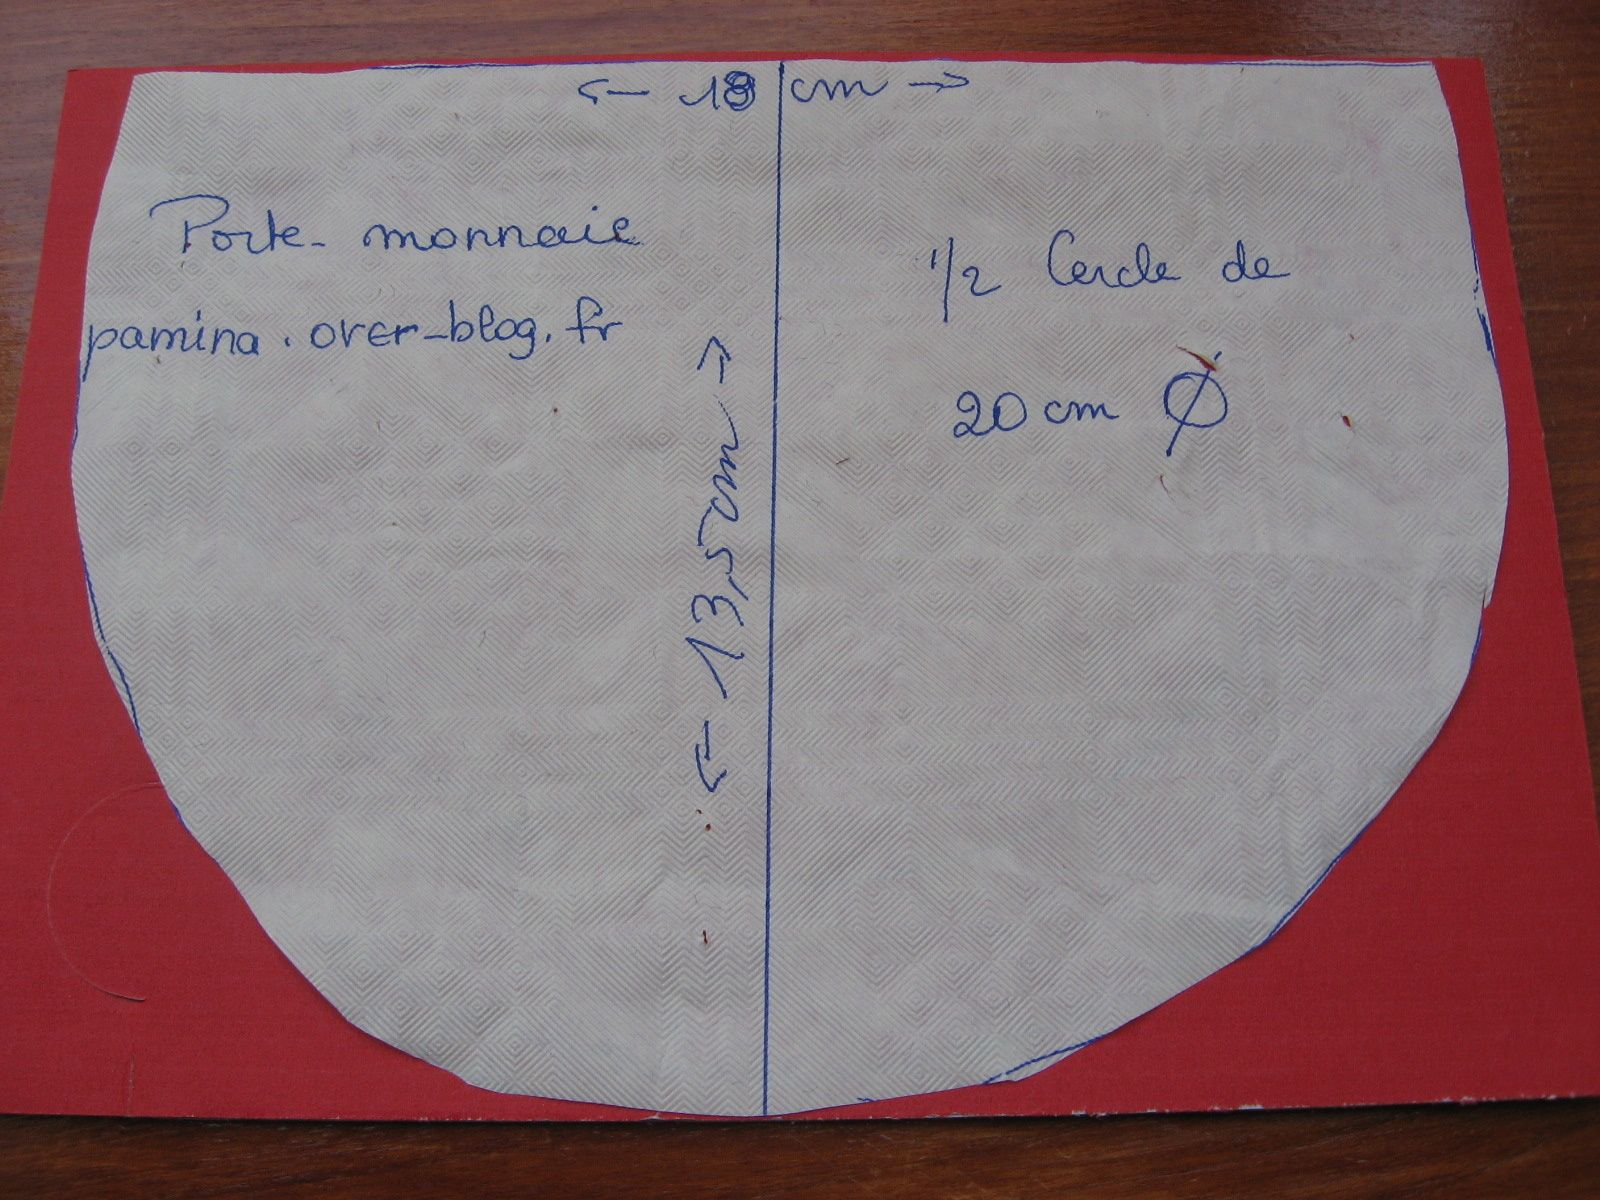 ← 18 cm →
Porte-monnaie
pamina.over-blog.fr
← 13,5cm →
1/2 Cercle de
20 cm Ø